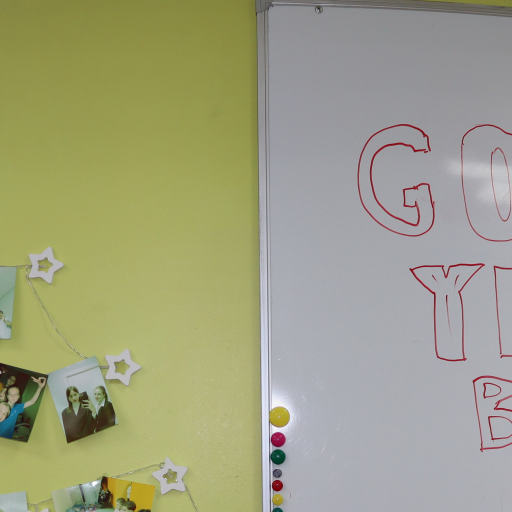 GO
Y
B